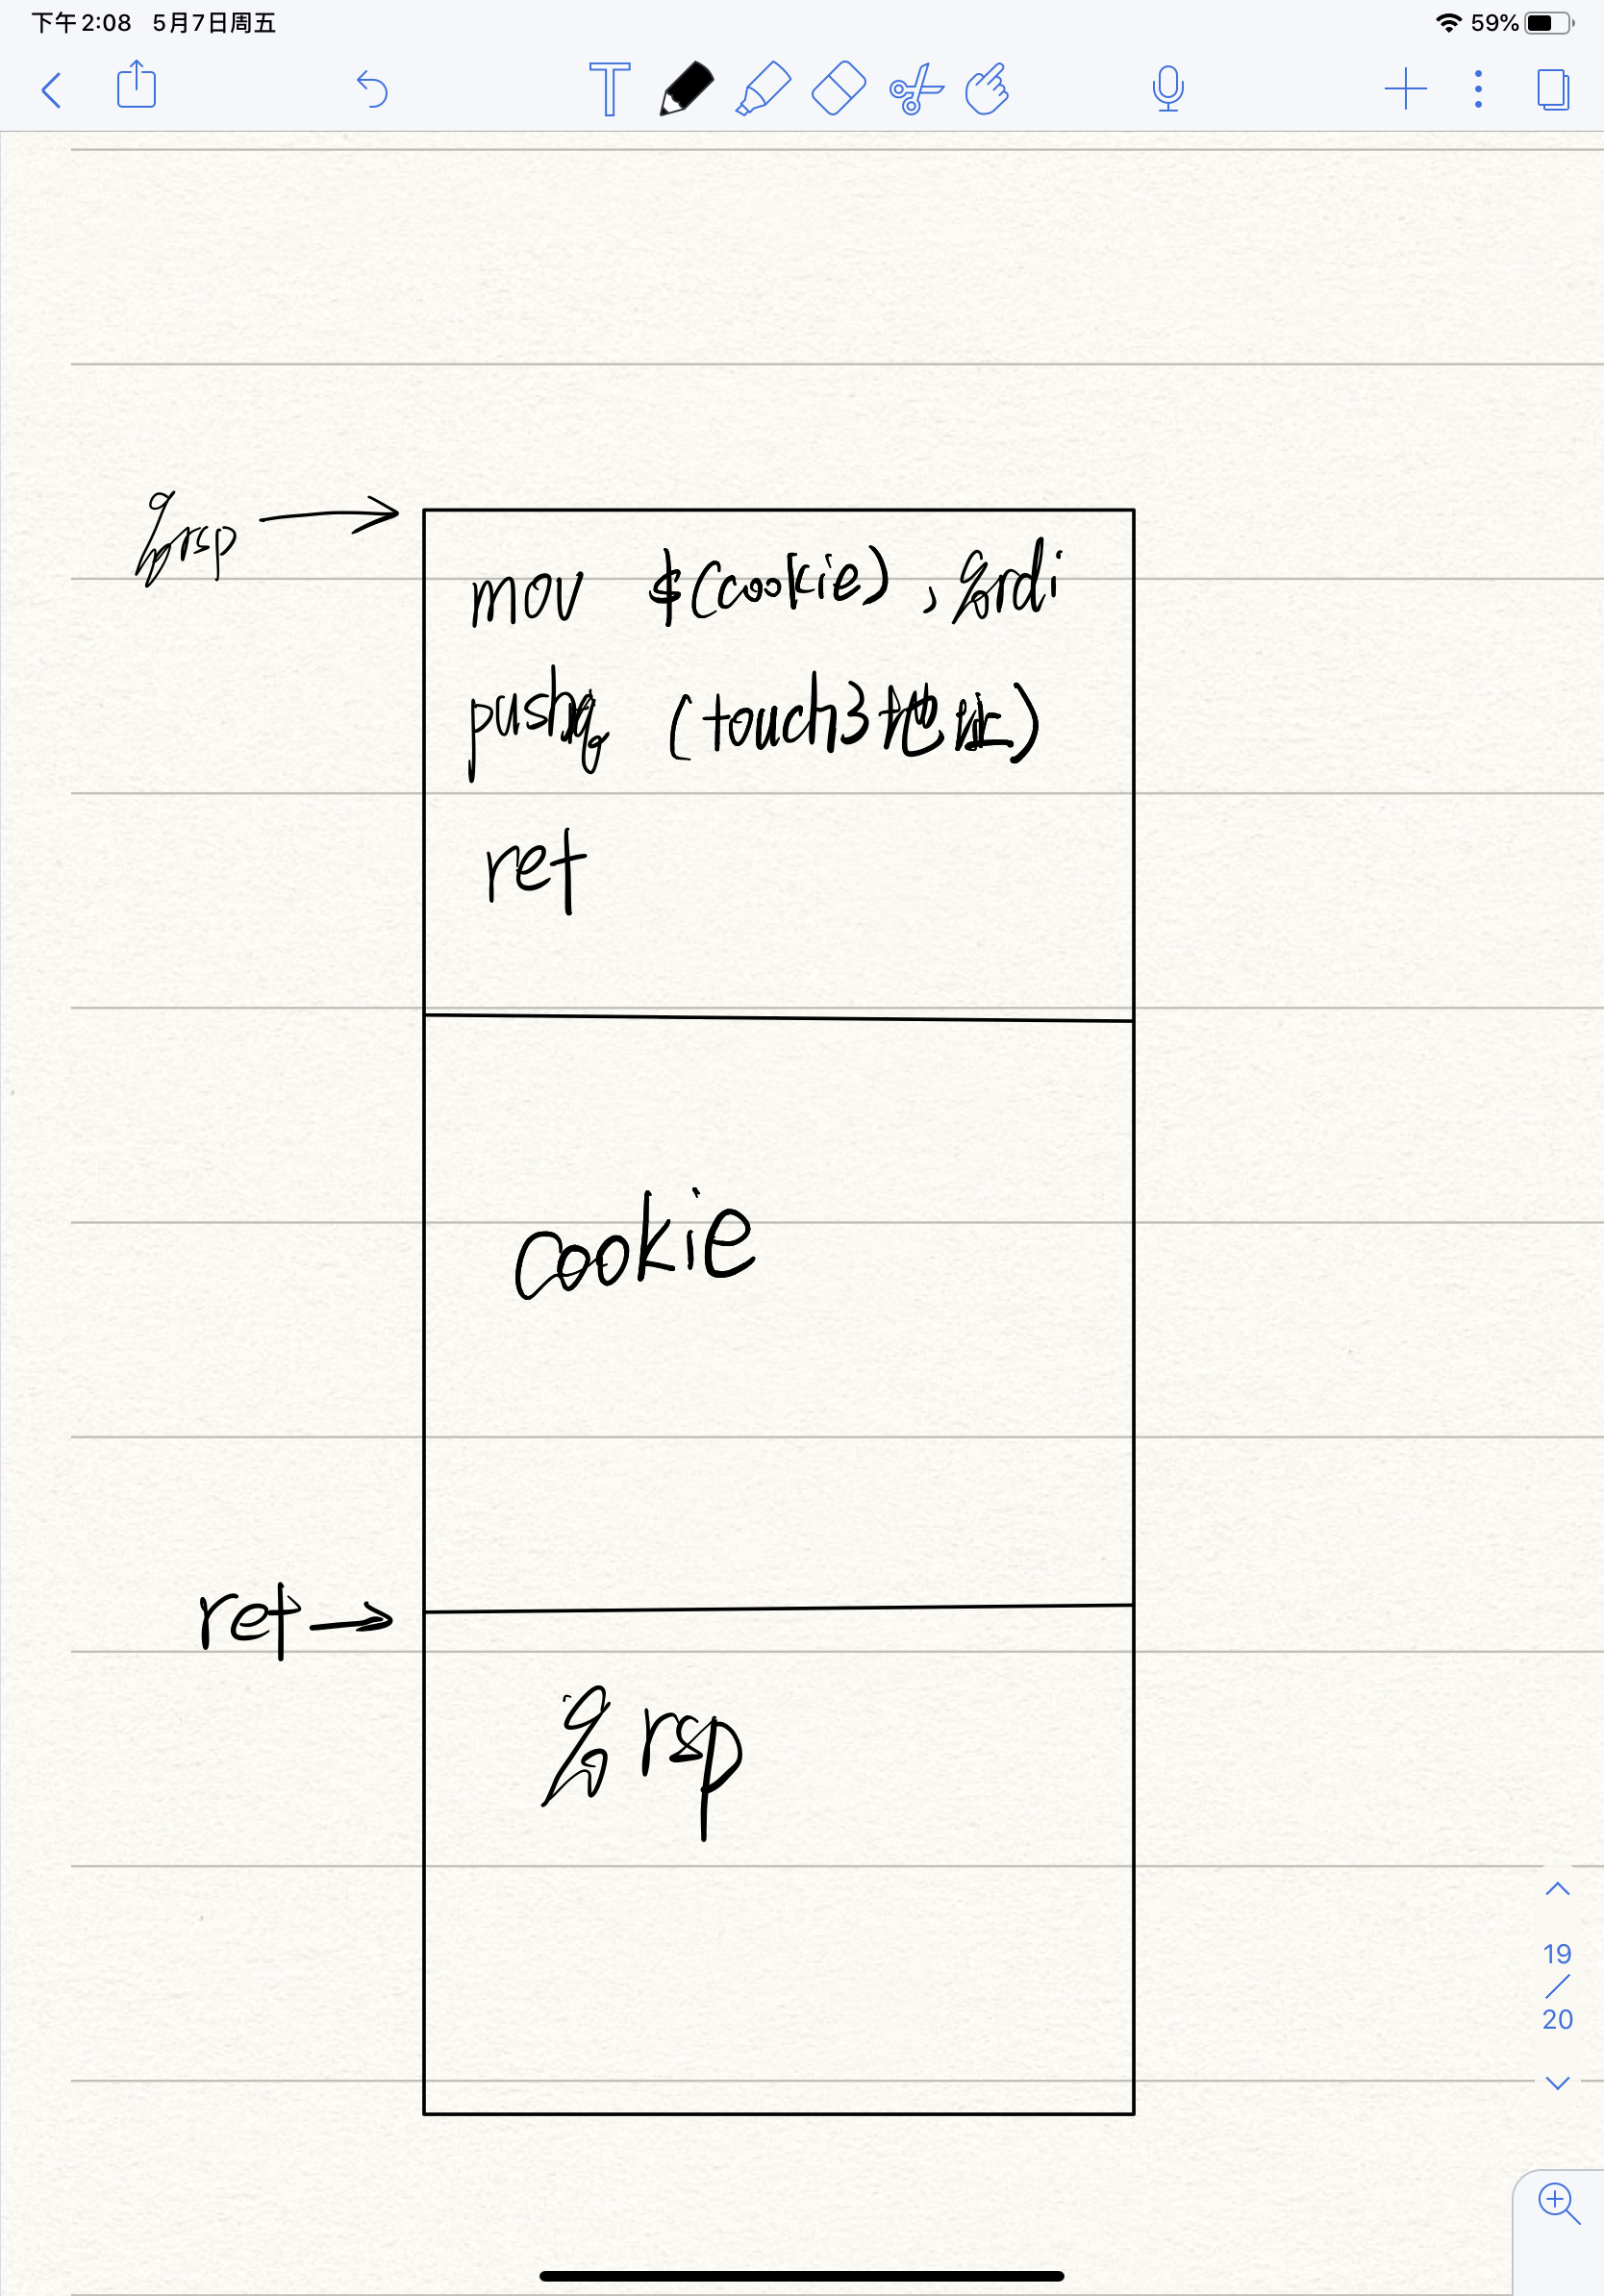 下午2:08 5月7日周五
59%
T
%rsp
mov $(cookie), %rdi
pushq (touch3地址)
ret
cookie
ret
%rsp
19
/
20